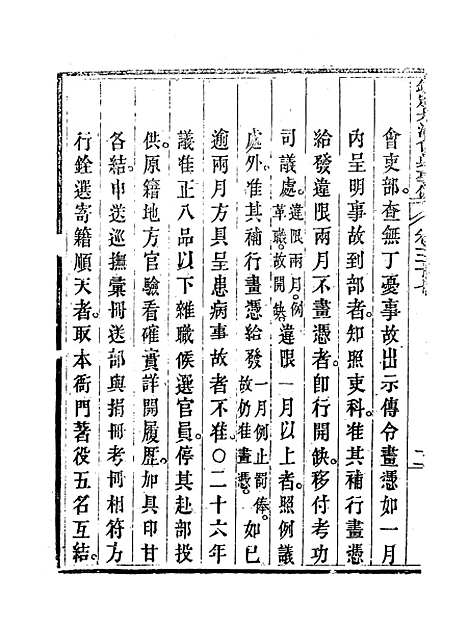 會吏部查無丁憂事故出示傳令畫憑如一月
內呈明事故到部者知照吏科准其補行畫憑
給發違限兩月不畫憑者卽行開缺移付考功
司議處違限兩月例革職故開缺違限一月以上者照例議
處外准其補行畫憑給發一月例止罰俸故仍准畫憑如已
逾兩月方具呈患病事故者不准〇二十六年
議准正八品以下雜職候選官員停其赴部投
供原籍地方官驗看確實詳開履歷加具印甘
各結申送巡撫彙冊送部與捐冊考冊相符方
行銓選寄籍順天者取本衙門著役五名互結